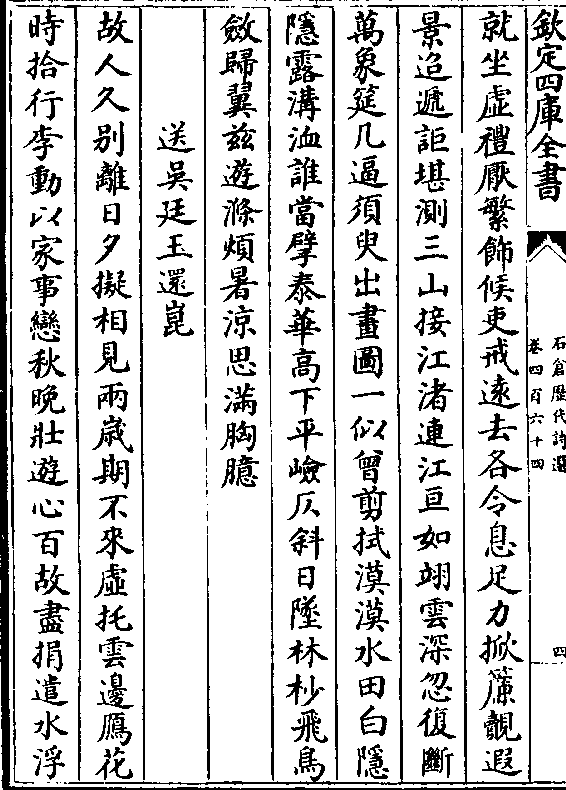 欽定四庫全書
石倉歷代詩選
卷四百六十四
四
就坐虛禮厭繁飾候吏戒遠去各令息足力掀簾覩遐
景迢遞詎堪測三山接江渚連江亘如翊雲深忽復斷
萬象筵几逼須臾出畫圖一似曾剪拭漠漠水田白隱
隱露溝洫誰當擘泰華高下平嶮仄斜日墜林杪飛鳥
斂歸翼兹遊滌煩暑涼思滿胸臆
送吳廷玉還崑
故人久别離日夕擬相見兩歲期不來虛托雲邊鴈花
時拾行李動以家事戀秋晚壯遊心百故盡捐遣水浮